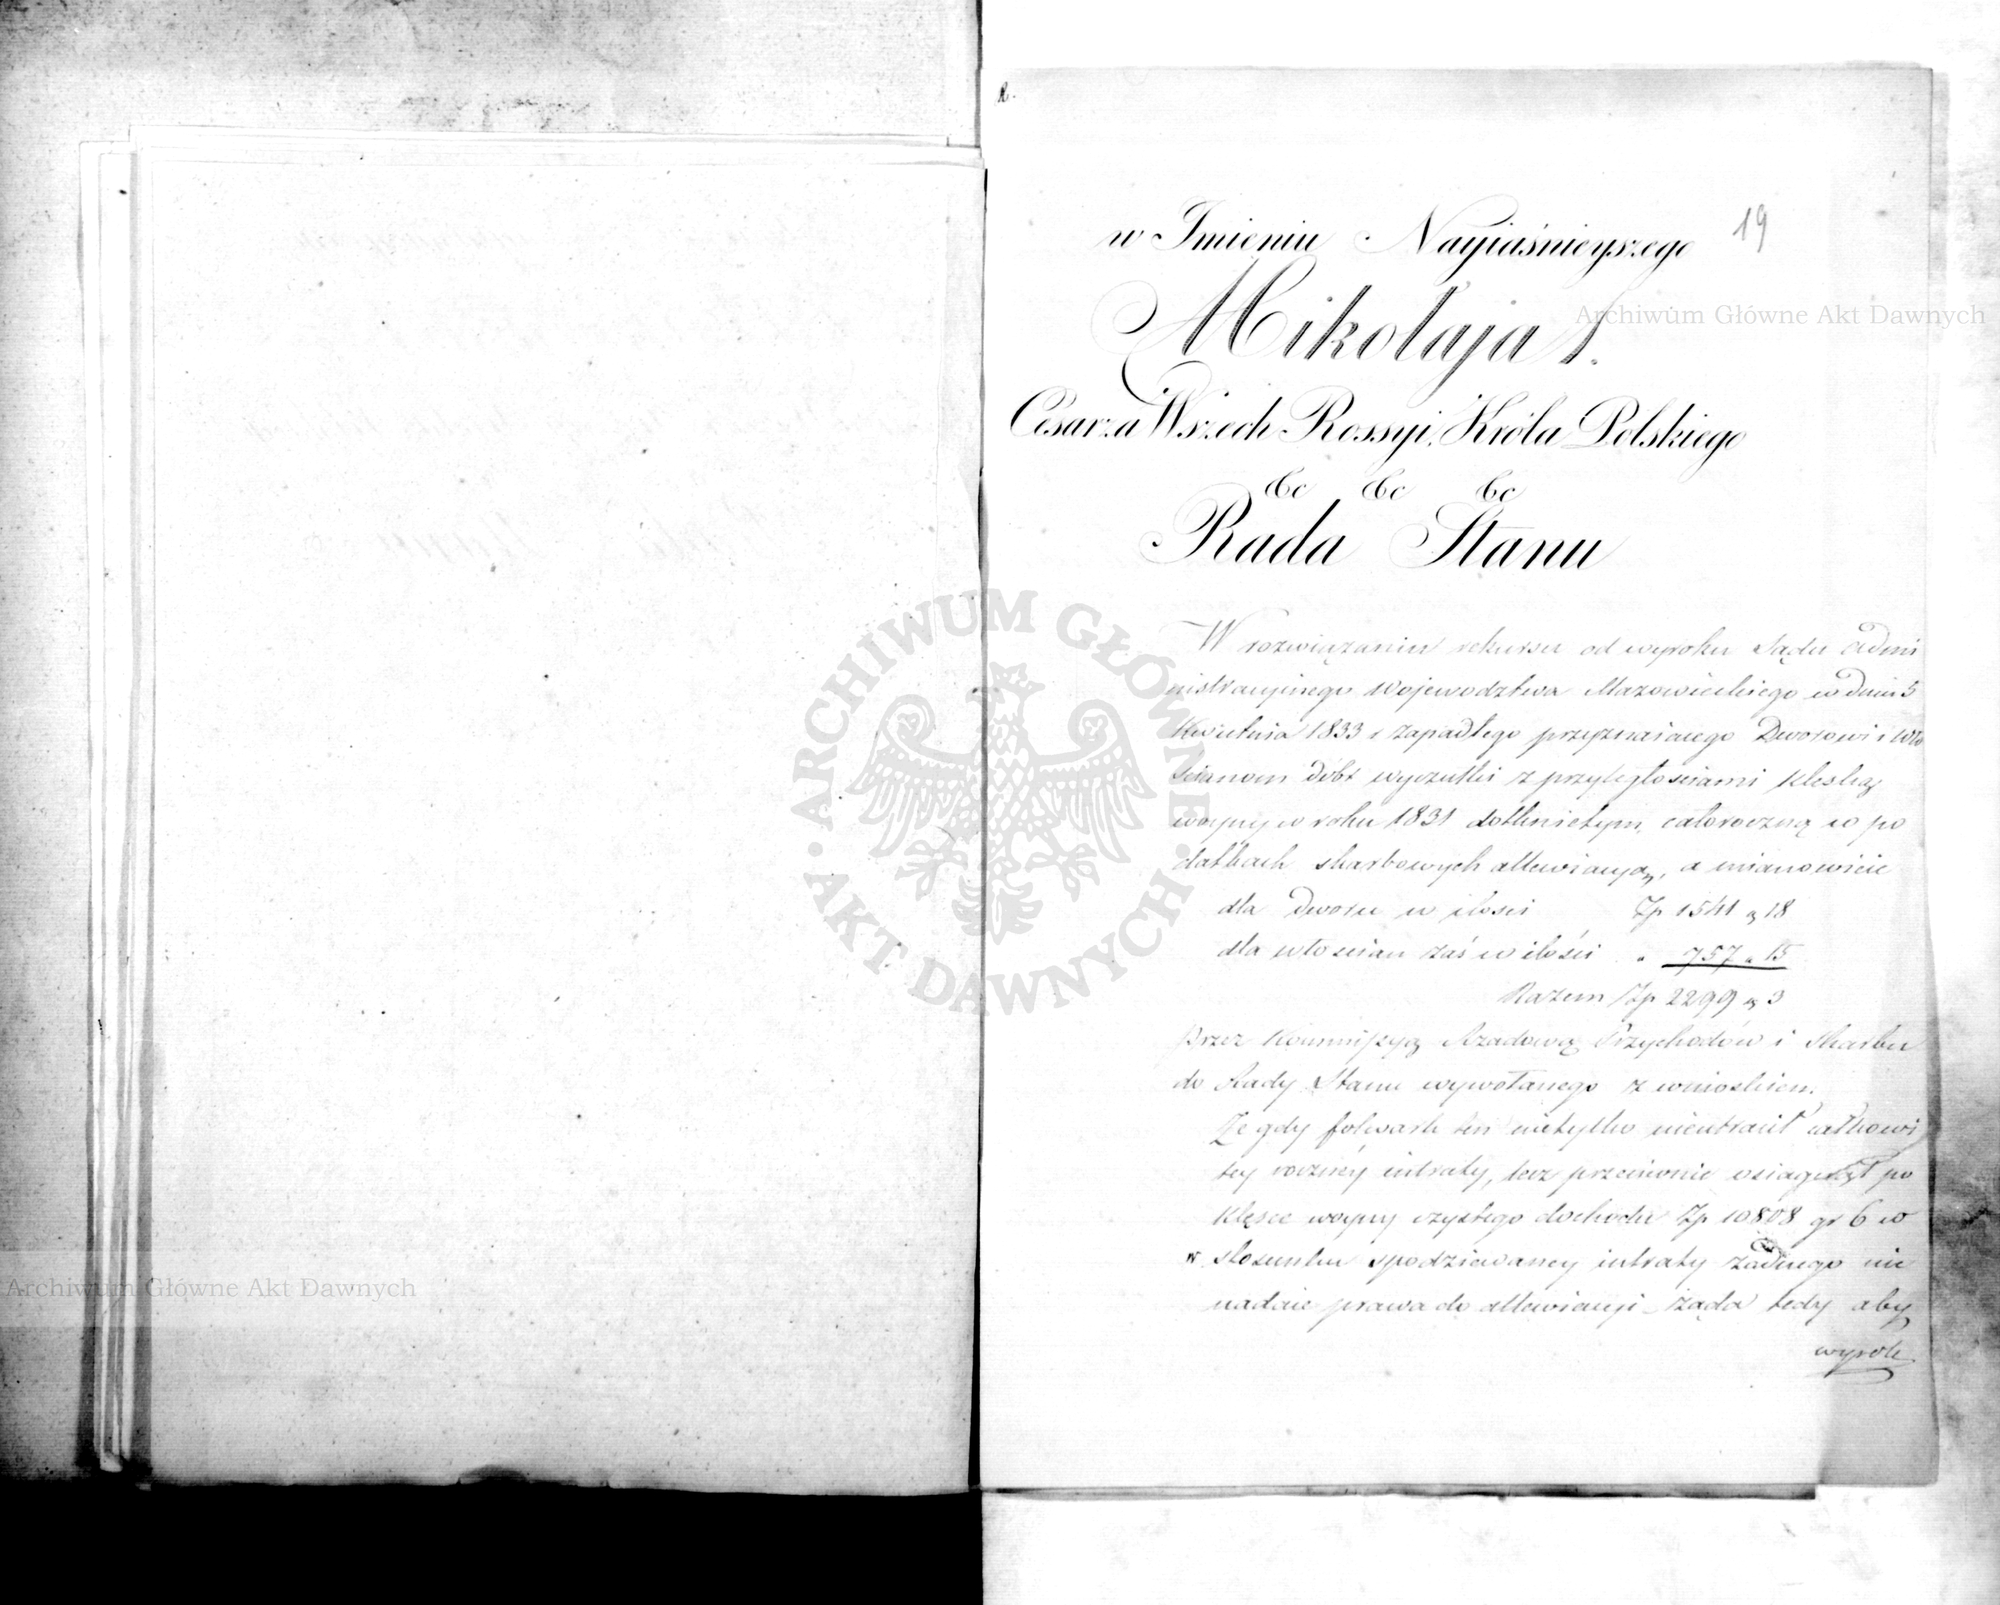 19
w Imieniu Nayiaśnieyszego
Mikołaja I.
Cesarza Wszech Rossyi, Króla Polskiego
&c &c &c
Rada Stanu
W rozwiązaniu rekursu od wyroku Sądu Admi
nistracyinego Wojewodztwa Mazowieckiego w dniu 5
Kwietnia 1833 r zapadłego przyznaiącego Dworowi i Wło
ścianom dóbr wyczułki z przyległościami klęską
woyny w roku 1831 dotkniętym, całoroczną w po
datkach skarbowych allewiacyą, a mianowicie
dla Dworu w ilości Zp 1541 g 18
dla włościan zaś w ilości " 757 " 15
Razem Zp 2299 g 3
Przez Kommissyą Rządową Przychodów i Skarbu
do Rady Stanu wywołanego z wnioskiem.
Że gdy folwark ten nietylko nieutracił całkowi
tey roczney intraty, lecz przeciwnie osiągnął po
klęsce woyny czystego dochodu Zp 10808 gr 6 w
stosunku spodziewaney intraty żadnego nie
nadaie prawa do allewiacyi żąda tedy aby
wyrok
Archiwum Główne Akt Dawnych
Archiwum Główne Akt Dawnych
ARCHIWUM GŁÓWNE · AKT DAWNYCH ·